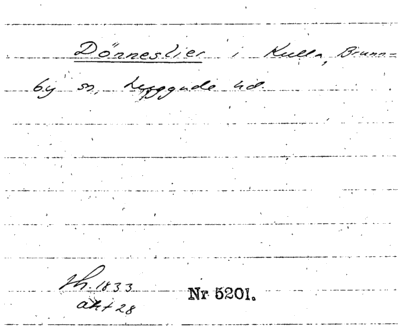 Dönneslier i Kulla, Brunn-
by sn, Luggude hd.
Lh. 1833
akt 28
Nr 5201.